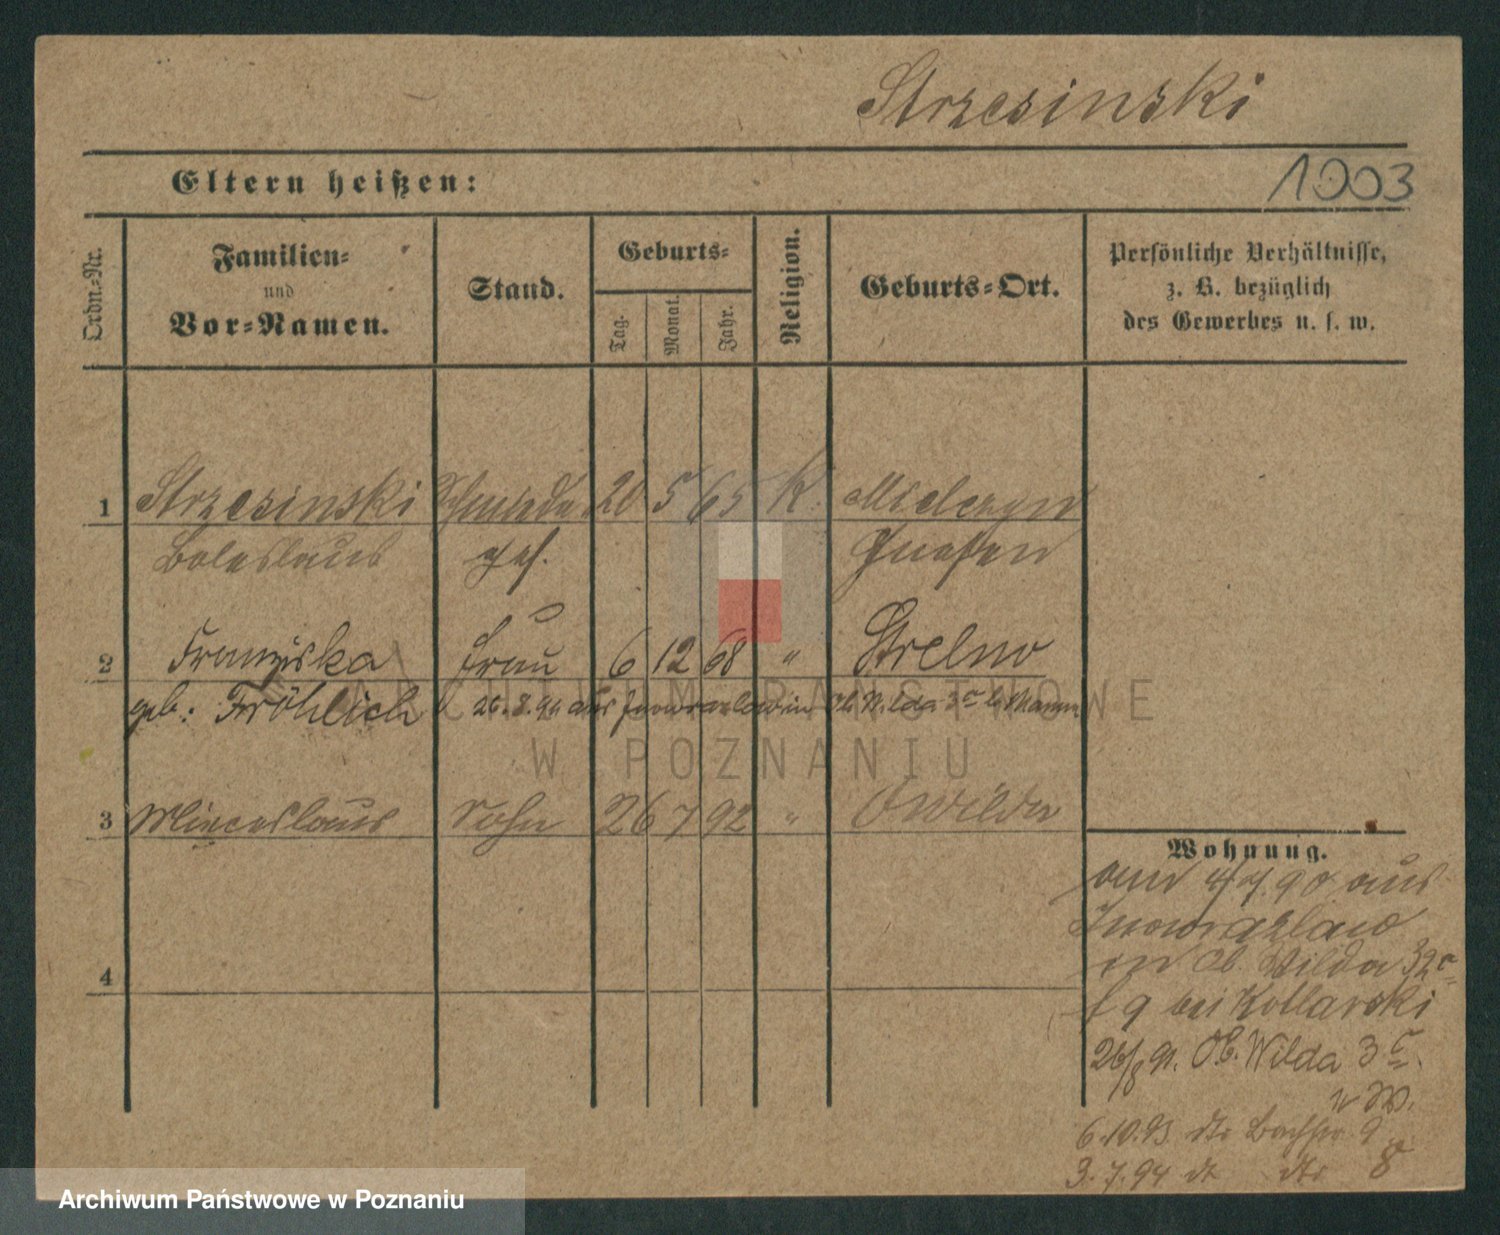 Strzesinski
Eltern heißen:
1003
Ordn.-Nr.
Familien-
und
Vor-Namen.
Stand.
Geburts-
Tag.
Monat.
Jahr.
Religion.
Geburts-Ort.
Persönliche Verhältnisse,
z. B. bezüglich
des Gewerbes u. s. w.
1 Strzesinski Schmiede 20 5 65 K. Mielczyn
Boleslaus gef. Gnesen
2 Franziska Frau 6 12 68 " Strelno
geb: Fröhlich aus Inowrazlaw in Ob. Wilda 3c b. Mann
3 Mieceslaus Sohn 26 7 92 " O Wilda
4
Wohnung.
am 4/7.90 aus
Inowrazlaw
in Ob. Wilda 32c
b 9 bei Kotlarski
26/8 91. Ob. Wilda 3c.
6.10.93 dto 9
3.7.94 dt dto 8
ARCHIWUM PAŃSTWOWE
W POZNANIU
Archiwum Państwowe w Poznaniu